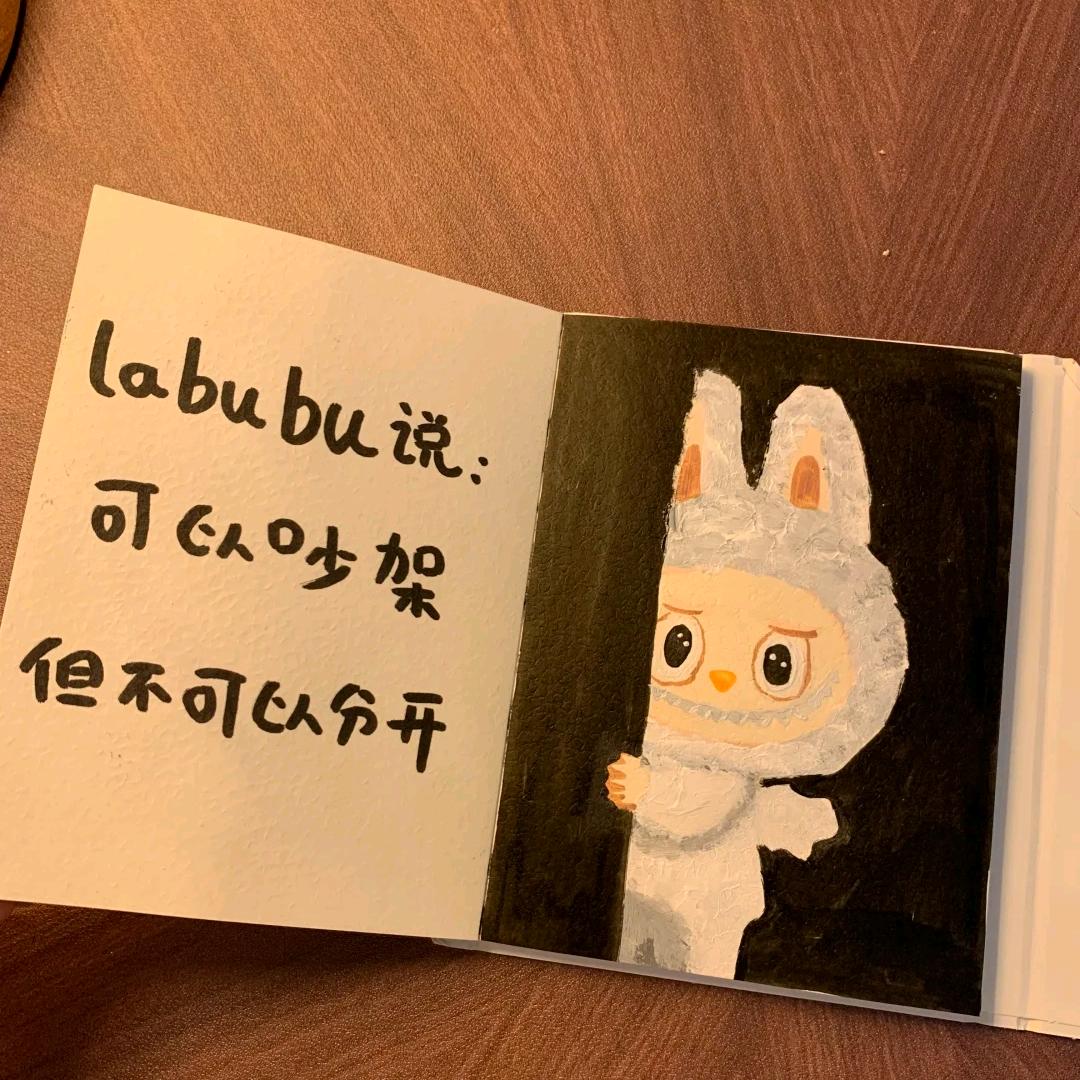 labubu说:
可以吵架
但不可以分开